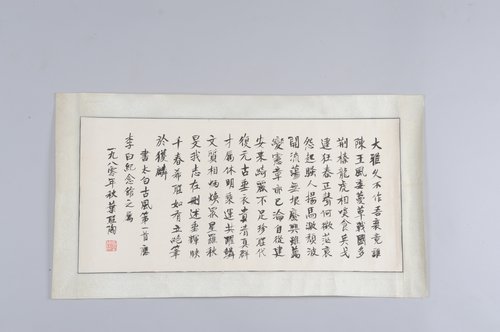 大雅久不作吾衰竟誰
陳王風委蔓草戰國多
荊榛龍虎相啖食兵戈
逮狂秦正聲何微茫哀
怨起騷人揚馬激頹波
開流蕩無垠廢興雖萬
變憲章亦已淪自從建
安來綺麗不足珍聖代
復元古垂衣貴清真群
才屬休明乘運共躍鱗
文質相炳煥眾星羅秋
旻我志在刪述垂輝映
千春希聖如有立絕筆
於獲麟
書太白古風第一首應
李白紀念館之屬
一九八零年秋葉聖陶